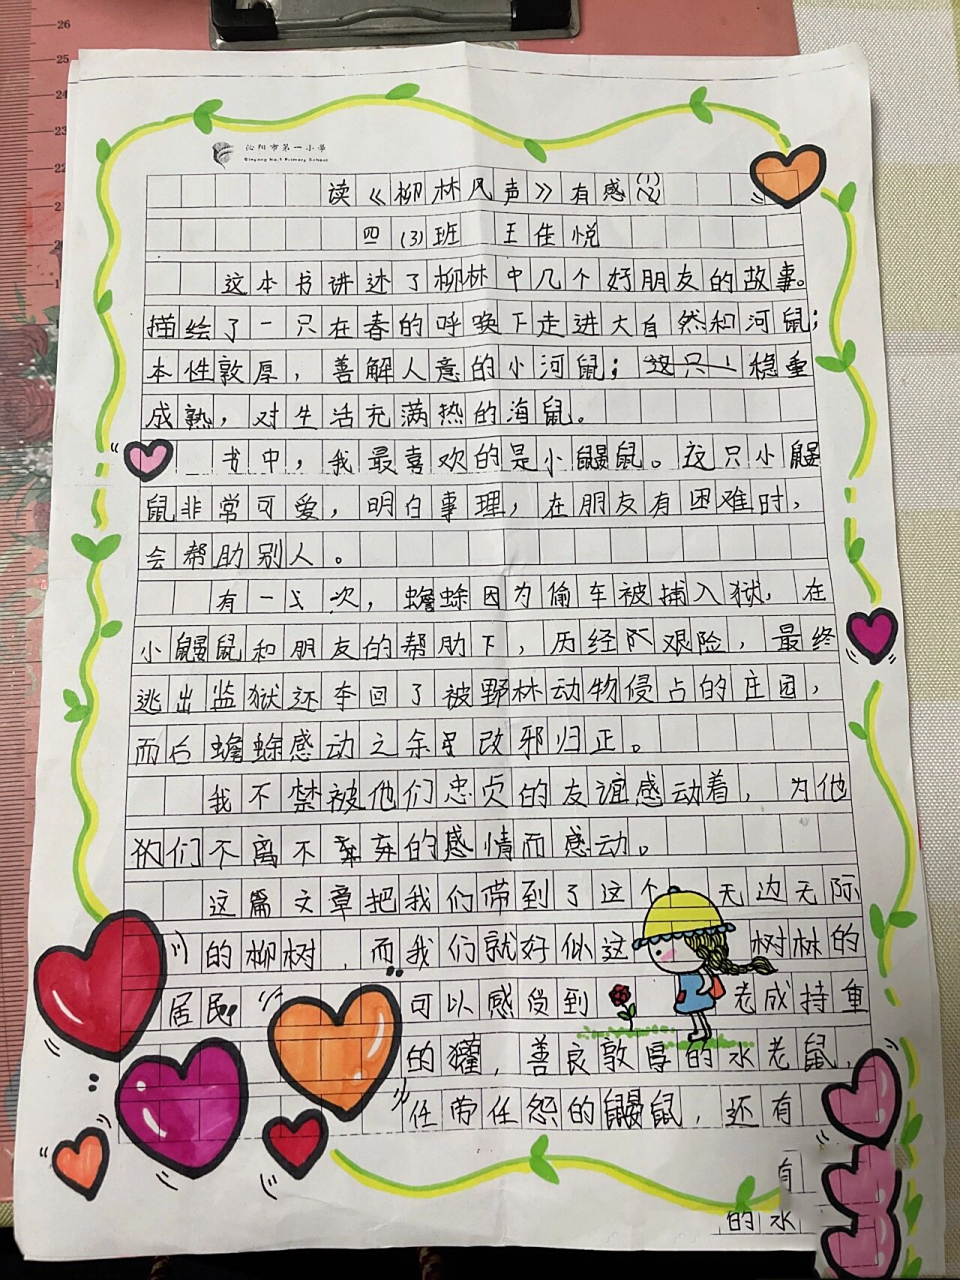 26
25
24
23
22
沁阳市第一小学
Qinyang No.1 Primary School
读《柳林风声》有感(1)
四(3)班 王佳悦
这本书讲述了柳林中几个好朋友的故事。
描绘了一只在春的呼唤下走进大自然和河鼠;
本性敦厚,善解人意的小河鼠;这只一稳重
成熟,对生活充满热的海鼠。
书中,我最喜欢的是小鼹鼠。这只小鼹
鼠非常可爱,明白事理,在朋友有困难时,
会帮助别人。
有一次,蟾蜍因为偷车被捕入狱,在
小鼹鼠和朋友的帮助下,历经艰险,最终
逃出监狱还夺回了被野林动物侵占的庄园,
而后蟾蜍感动之余改邪归正。
我不禁被他们忠贞的友谊感动着,为他
们不离不弃的感情而感动。
这篇文章把我们带到了这个无边无际
的柳树,而我们就好似这树林的
居民 可以感受到 老成持重
的獾,善良敦厚的水老鼠,
任劳任怨的鼹鼠,还有
的水